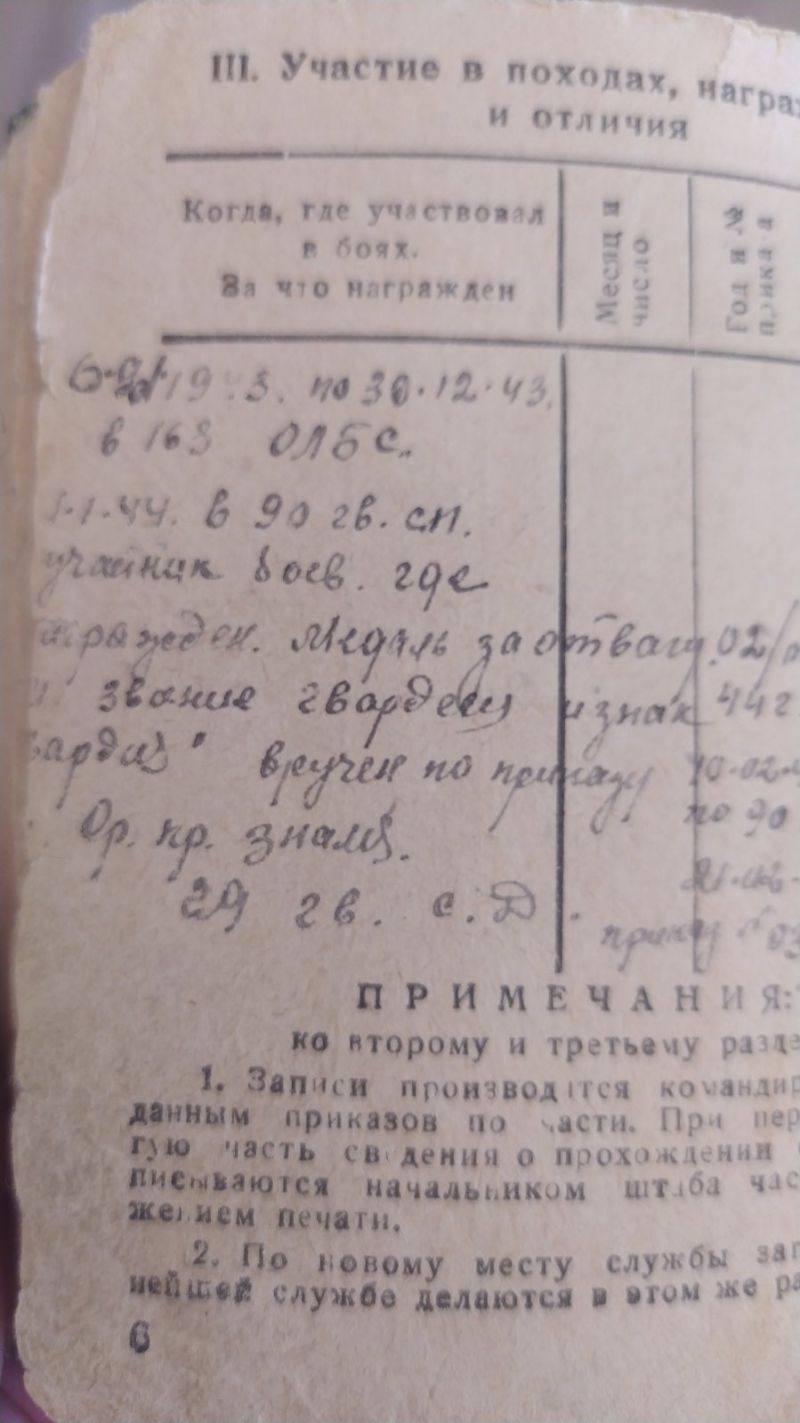 III. Участие в походах, награ
и отличия
Когда, где участвовал
в боях.
За что награжден
Месяц и
число
Год и №
по 30.12.43.
в 163 ОЛБС.
1-1-44. в 90 гв. сп.
боев. где
Медаль за отвагу 02/
звание гвардеец и знак 44 г
вручен по приказу 10-02-
по 90
Ор. кр. знамя.
29 гв. с.Д
приказ 03
ПРИМЕЧАНИЯ:
ко второму и третьему разде
1. Записи производятся командир
данным приказов по части. При пер
гую часть сведения о прохождении
писываются начальником штаба час
жением печати.
2. По новому месту службы зап
нейшей службе делаются в этом же ра
6